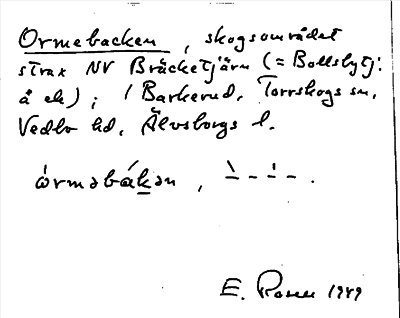 Ormebacken, skogsområdet
strax NV Bräcketjärn (= Bollsbytj.
å ek); i Barkerud, Torrskogs sn,
Vedbo hd, Älvsborgs l.
òrməbák̲ən, 
E. Rosen 1949